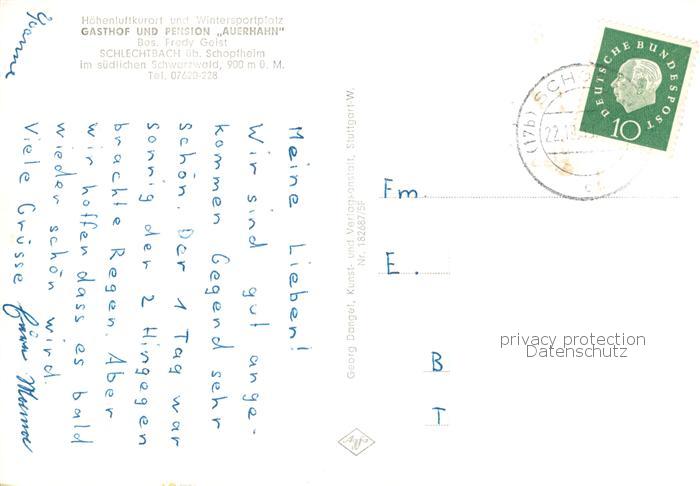 Höhenluftkurort und Wintersportplatz
GASTHOF UND PENSION „AUERHAHN"
Bes. Fredy Geist
SCHLECHTBACH üb. Schopfheim
im südlichen Schwarzwald, 900 m ü. M.
Tel. 07620-228
Meine Lieben!
Wir sind gut ange-
kommen Gegend sehr
schön. Der 1 Tag war
sonnig der 2 Hingegen
brachte Regen. Aber
wir hoffen dass es bald
wieder schön wird.
Viele Grüsse
Georg Dangel, Kunst- und Verlagsanstalt, Stuttgart-W.
Nr. 182687/5F
DEUTSCHE BUNDESPOST
10
(17b) SCH
22.10.
Fm.
E.
B
T
privacy protection
Datenschutz